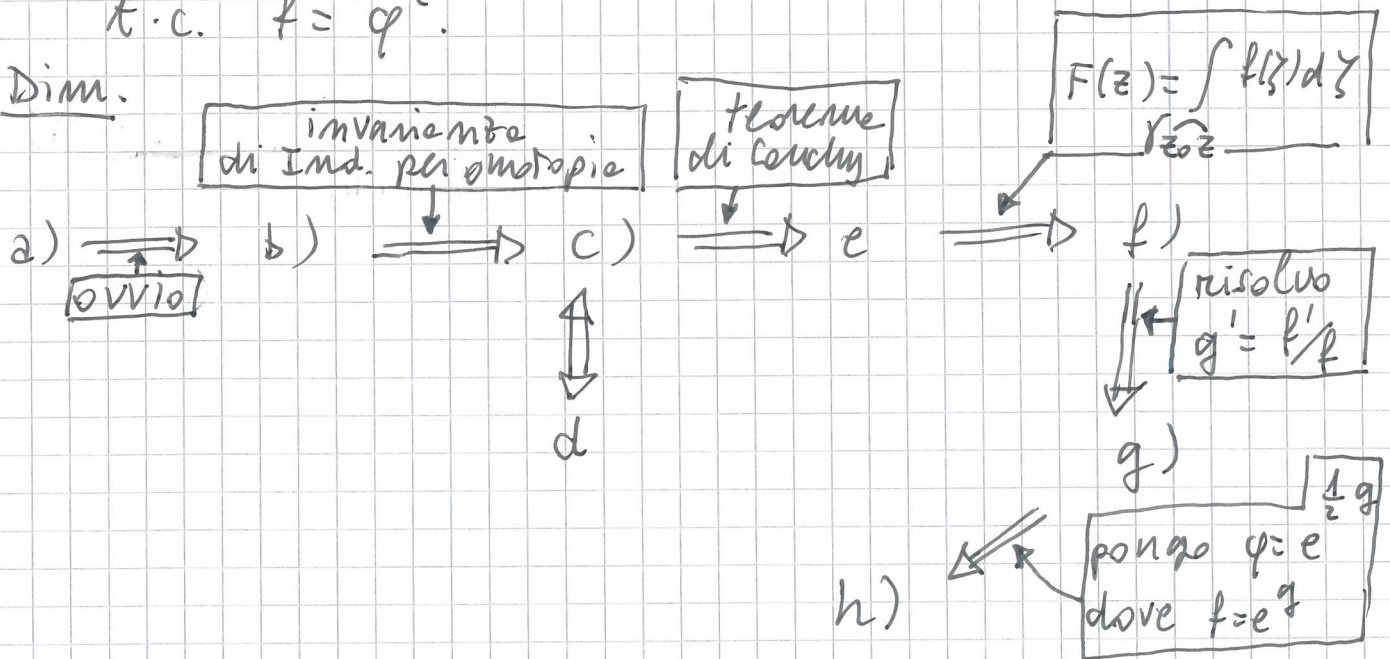 t.c. f = φ².
Dim.
invarianza
di Ind. per omotopia
teorema
di Cauchy
F(z) = ∫ f(ζ) dζ
γ z₀ z
a) ⟹ b) ⟹ c) ⟹ e ⟹ f)
ovvio
risolvo
g' = f'/f
d
g)
h)
pongo φ = e^{½ g}
dove f = e^g